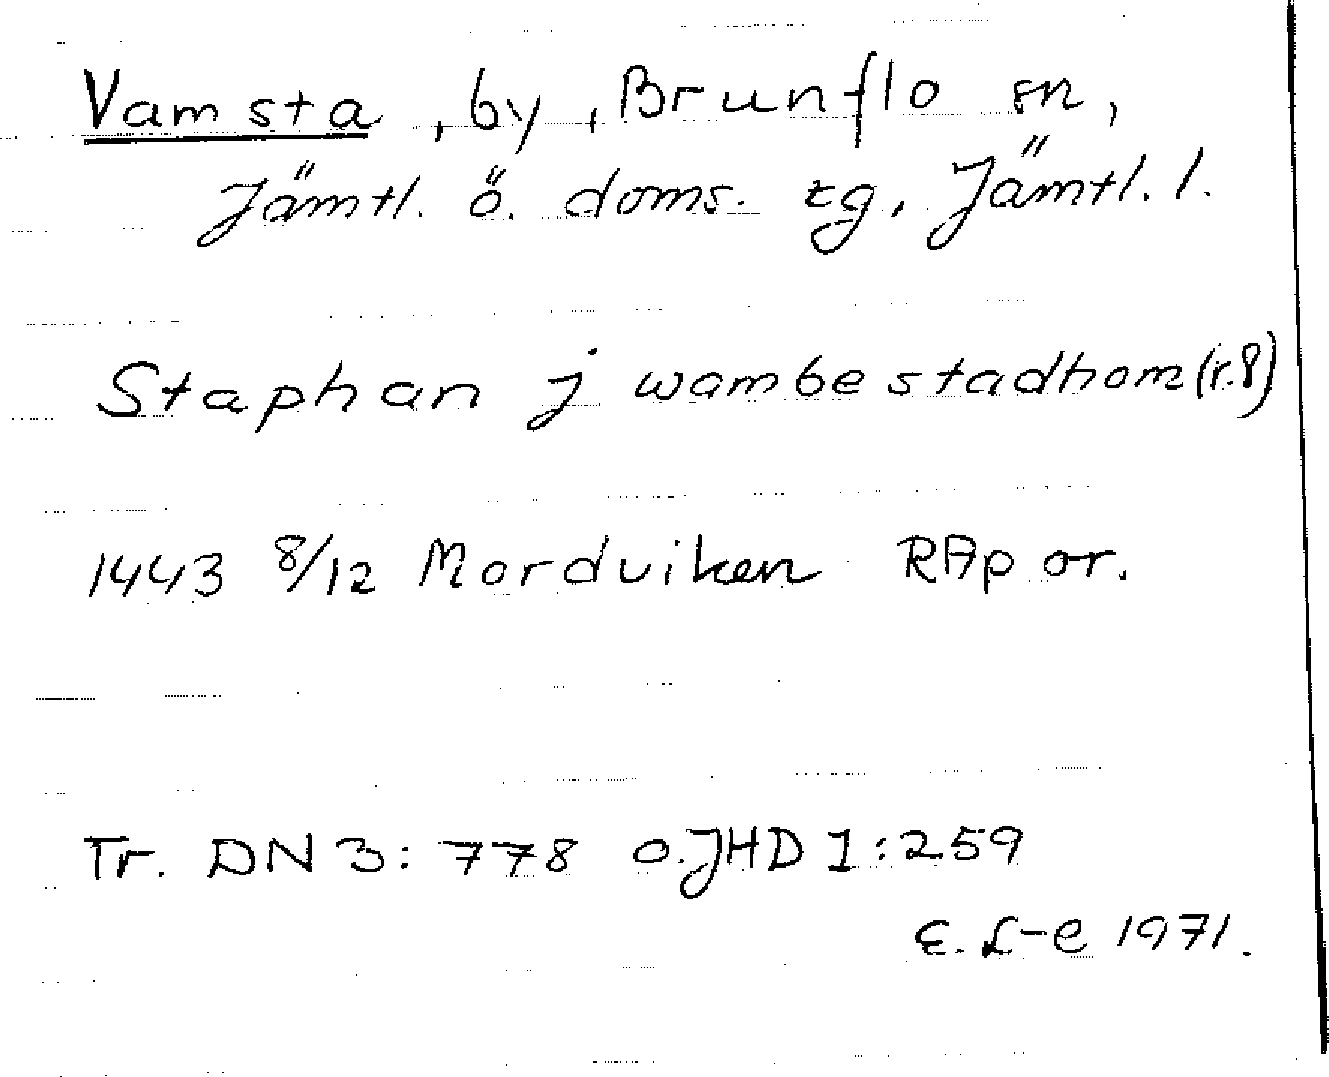 Vamsta, by, Brunflo sn,
Jämtl. ö. doms. tg, Jämtl. l.
Staphan j wambestadhom (r.8)
1443 8/12 Mordviken RAp or.
Tr. DN 3:778 o. JHD 1:259
E. L-e 1971.